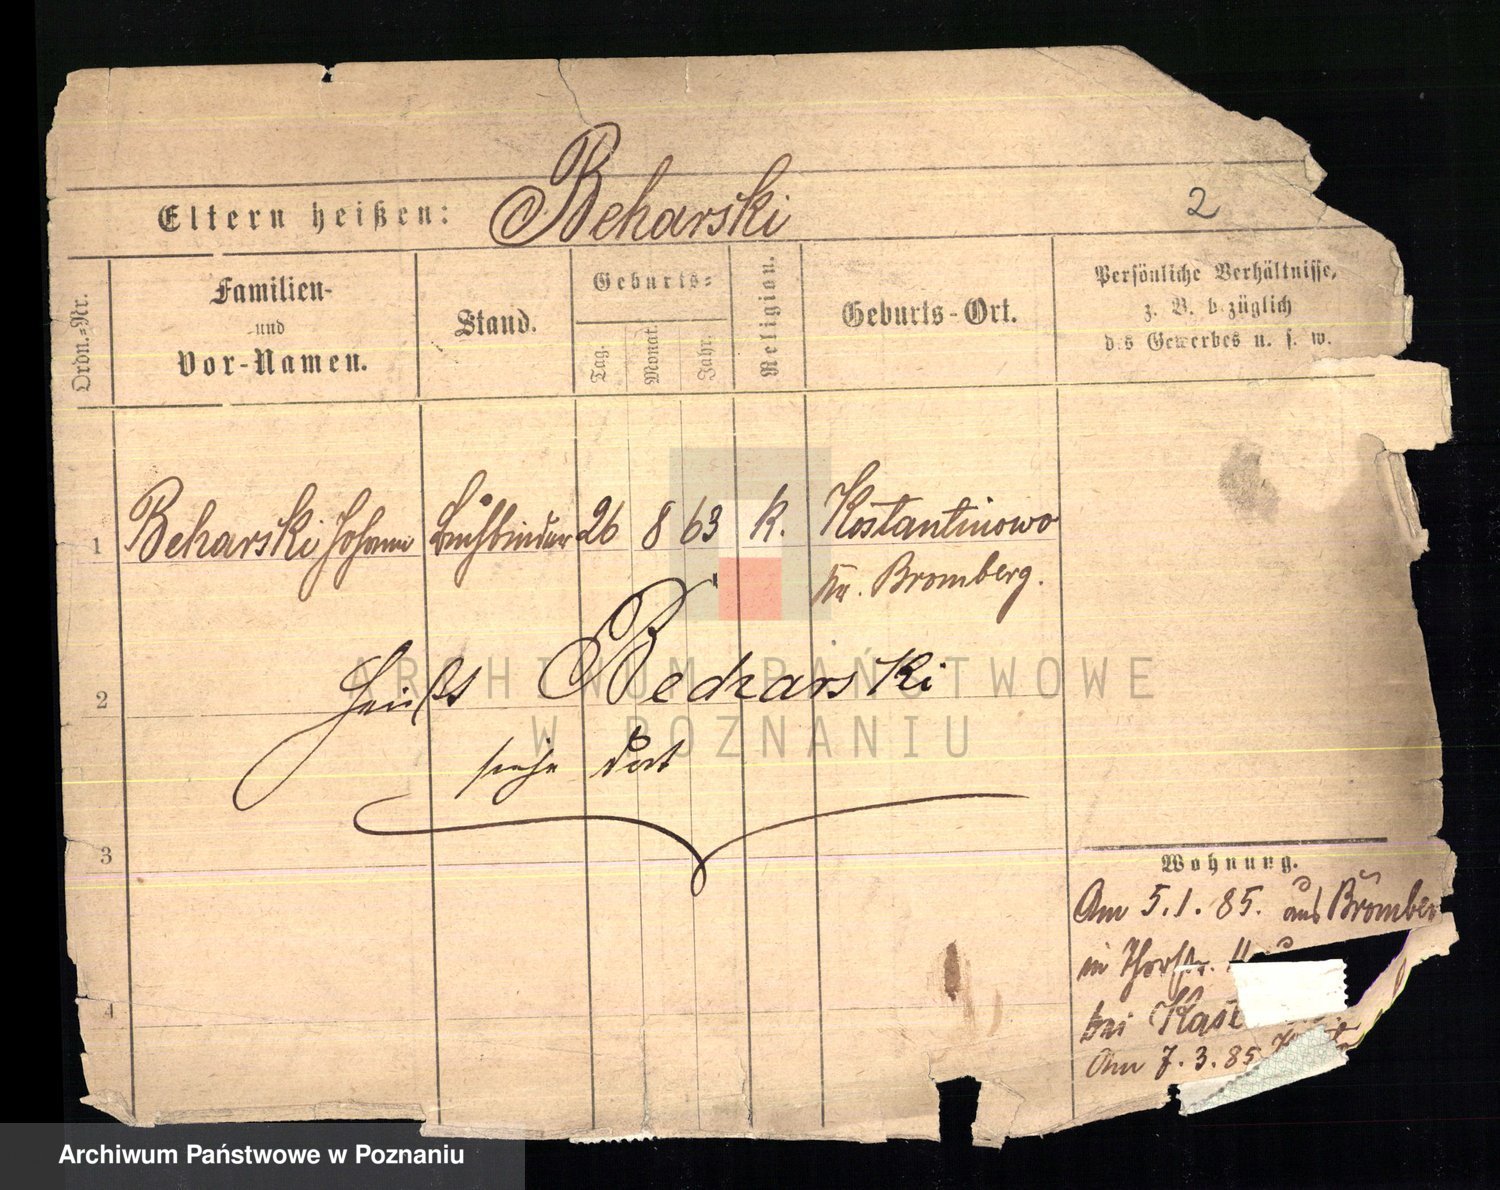 Beharski
2
Eltern heißen:
Ordn.-Nr.
Familien-
und
Vor-Namen.
Stand.
Geburts-
Tag.
Monat.
Jahr.
Religion.
Geburts-Ort.
Persönliche Verhältnisse,
z. B. bezüglich
des Gewerbes u. s. w.
1 Beharski Johann Buchbinder 26 8 63 k. Kostantinowo
Kr. Bromberg.
2 heißt Bednarski
siehe dort
3
Wohnung.
Am 5.1.85. aus Bromber
in
4
bei
Am 7.3.85
ARCHIWUM PAŃSTWOWE
W POZNANIU
Archiwum Państwowe w Poznaniu